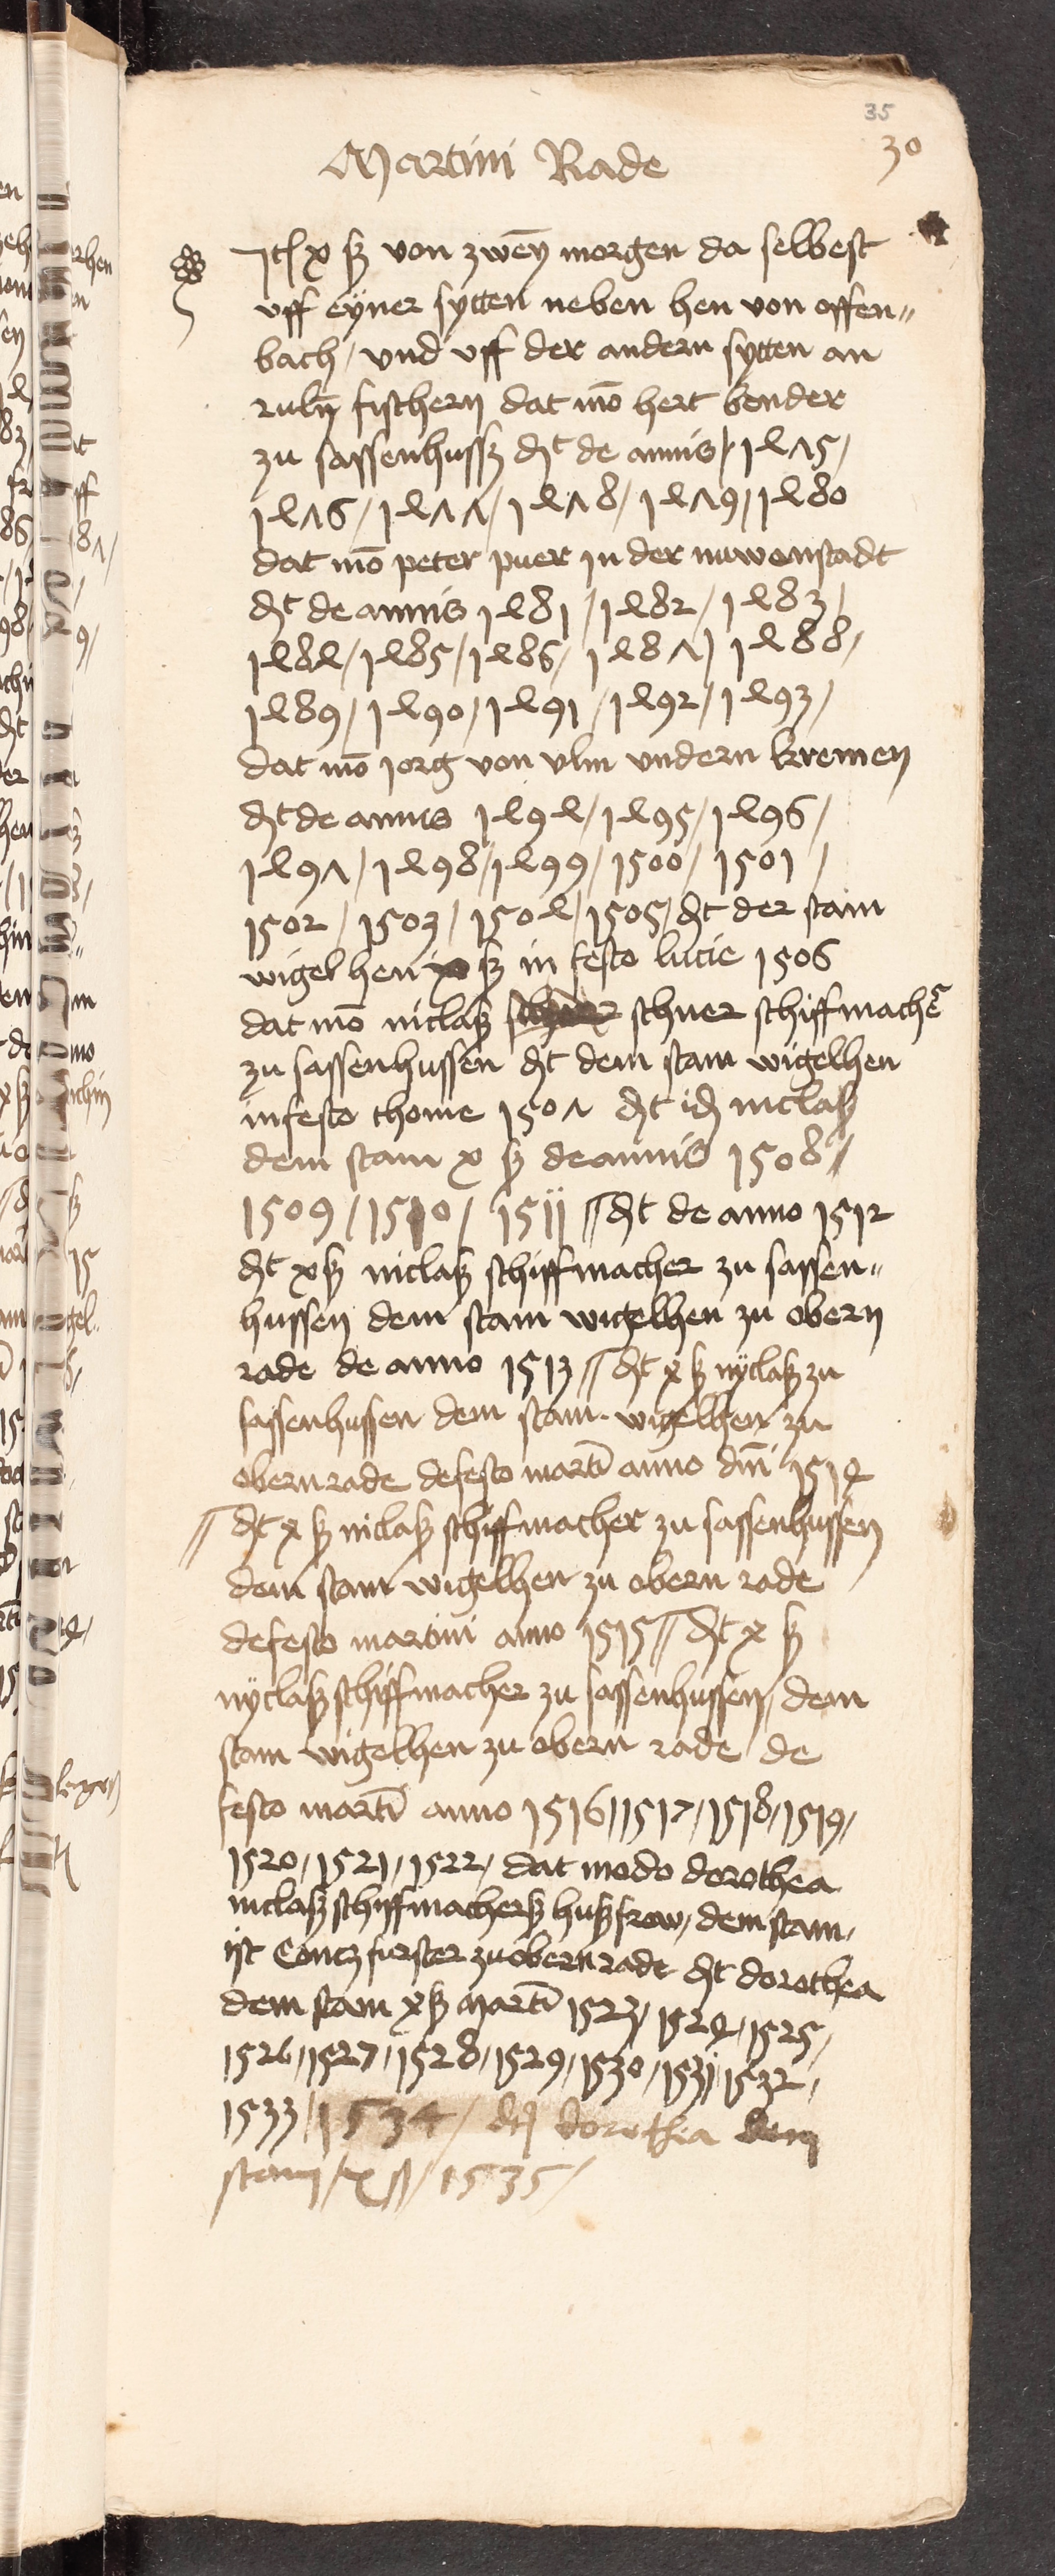 35
30
Martini Rade
Jt͞ x ß von zweÿ morgen da selbest
vff eyner sytten neben hen von offen〃
bach / vnd vff der andern sytten an
ruln̄ fischern dat mō hert bender
zu sassenhussz dt̄ de annis / 1475 /
1476 / 1477 / 1478 / 1479 / 1480
dat mō peter puer in der nuwenstadt
dt̄ de annis 1481 / 1482 / 1483 /
1484 / 1485 / 1486 / 1487 / 1488 /
1489 / 1490 / 1491 / 1492 / 1493 /
dat mō jorg von vlm vndern kremen
dt̄ de annis 1494 / 1495 / 1496 /
1497 / 1498 / 1499 / 1500 / 1501 /
1502 / 1503 / 1504 / 1505 / dt̄ der stam
wigel hen x ß in festo lucie 1506
dat mō niclaß schuer schiffmacher
zu sassenhussen dt̄ dem stam wigelhen
in festo thome 1507 dt̄ id̄ niclaß
dem stam x ß de annis 1508 /
1509 / 1510 / 1511 // dt̄ de anno 1512
dt̄ x ß niclaß schiffmacher zu sassen〃
hussen dem stam wigelhen zu obern
rade de anno 1513 // dt̄ x ß nyclaß zu
sassenhussen dem stam wigelhen zu
obern rade de festo martī anno dm̄ 1514
// dt̄ x ß niclaß schiffmacher zu sassenhussen
dem stam wigelhen zu obern rade
de festo martini anno 1515 // dt̄ x ß
nyclaß schiffmacher zu sassenhussen / dem
stam wigelhen zu obern rade de
festo martī anno 1516 / 1517 / 1518 / 1519 /
1520 / 1521 / 1522 / dat modo dorothea
niclaß schiffmacherß hußfrow / dem stam /
ist Contz furster zu obern rade dt̄ dorothea
dem stam x ß martī 1523 / 1524 / 1525 /
1526 / 1527 / 1528 / 1529 / 1530 / 1531 / 1532 /
1533 / 1534 / dt̄ dorothea dem
stam / x ß / 1535 /